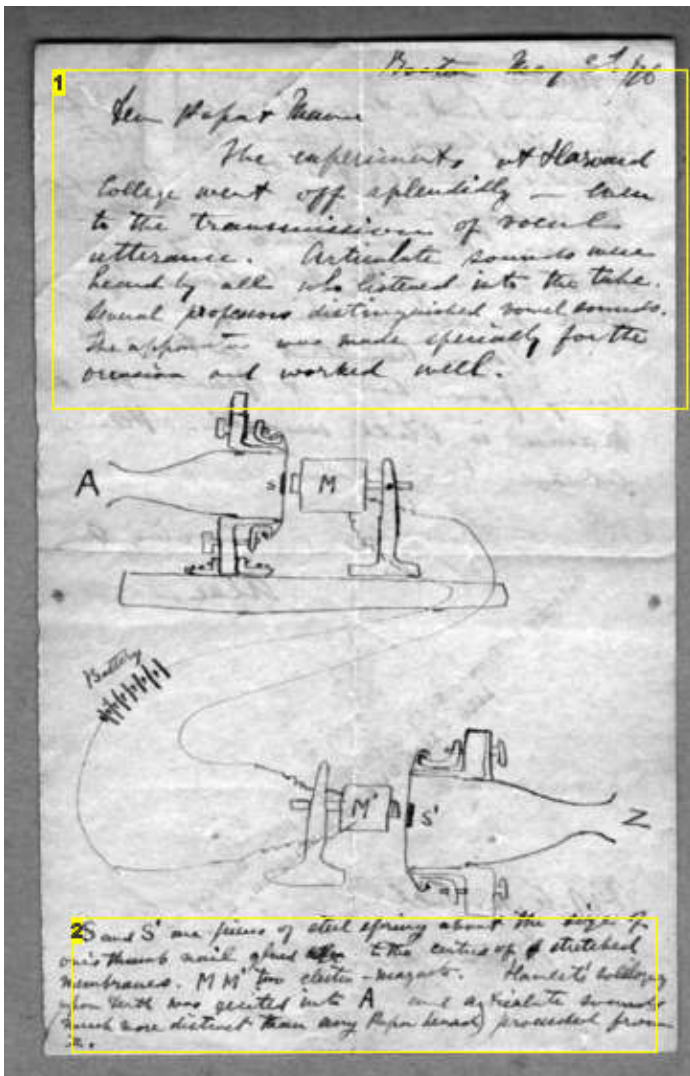 Boston May
Dear Papa & Mama
The experiments at Harvard
College went off splendidly — even
to the transmission of vocal
utterance. Articulate sounds were
heard by all who listened into the tube.
Several professors distinguished vowel sounds.
The apparatus was made specially for the
occasion and worked well.
A S M
Battery
M' S' Z
S and S' are pieces of steel spring about the size of
one's thumb nail glued to the centres of stretched
membranes. M M' two electro-magnets. Hamlet's soliloquy
was into A and articulate sounds
(much more distinct than any Papa heard) proceeded from
Z.